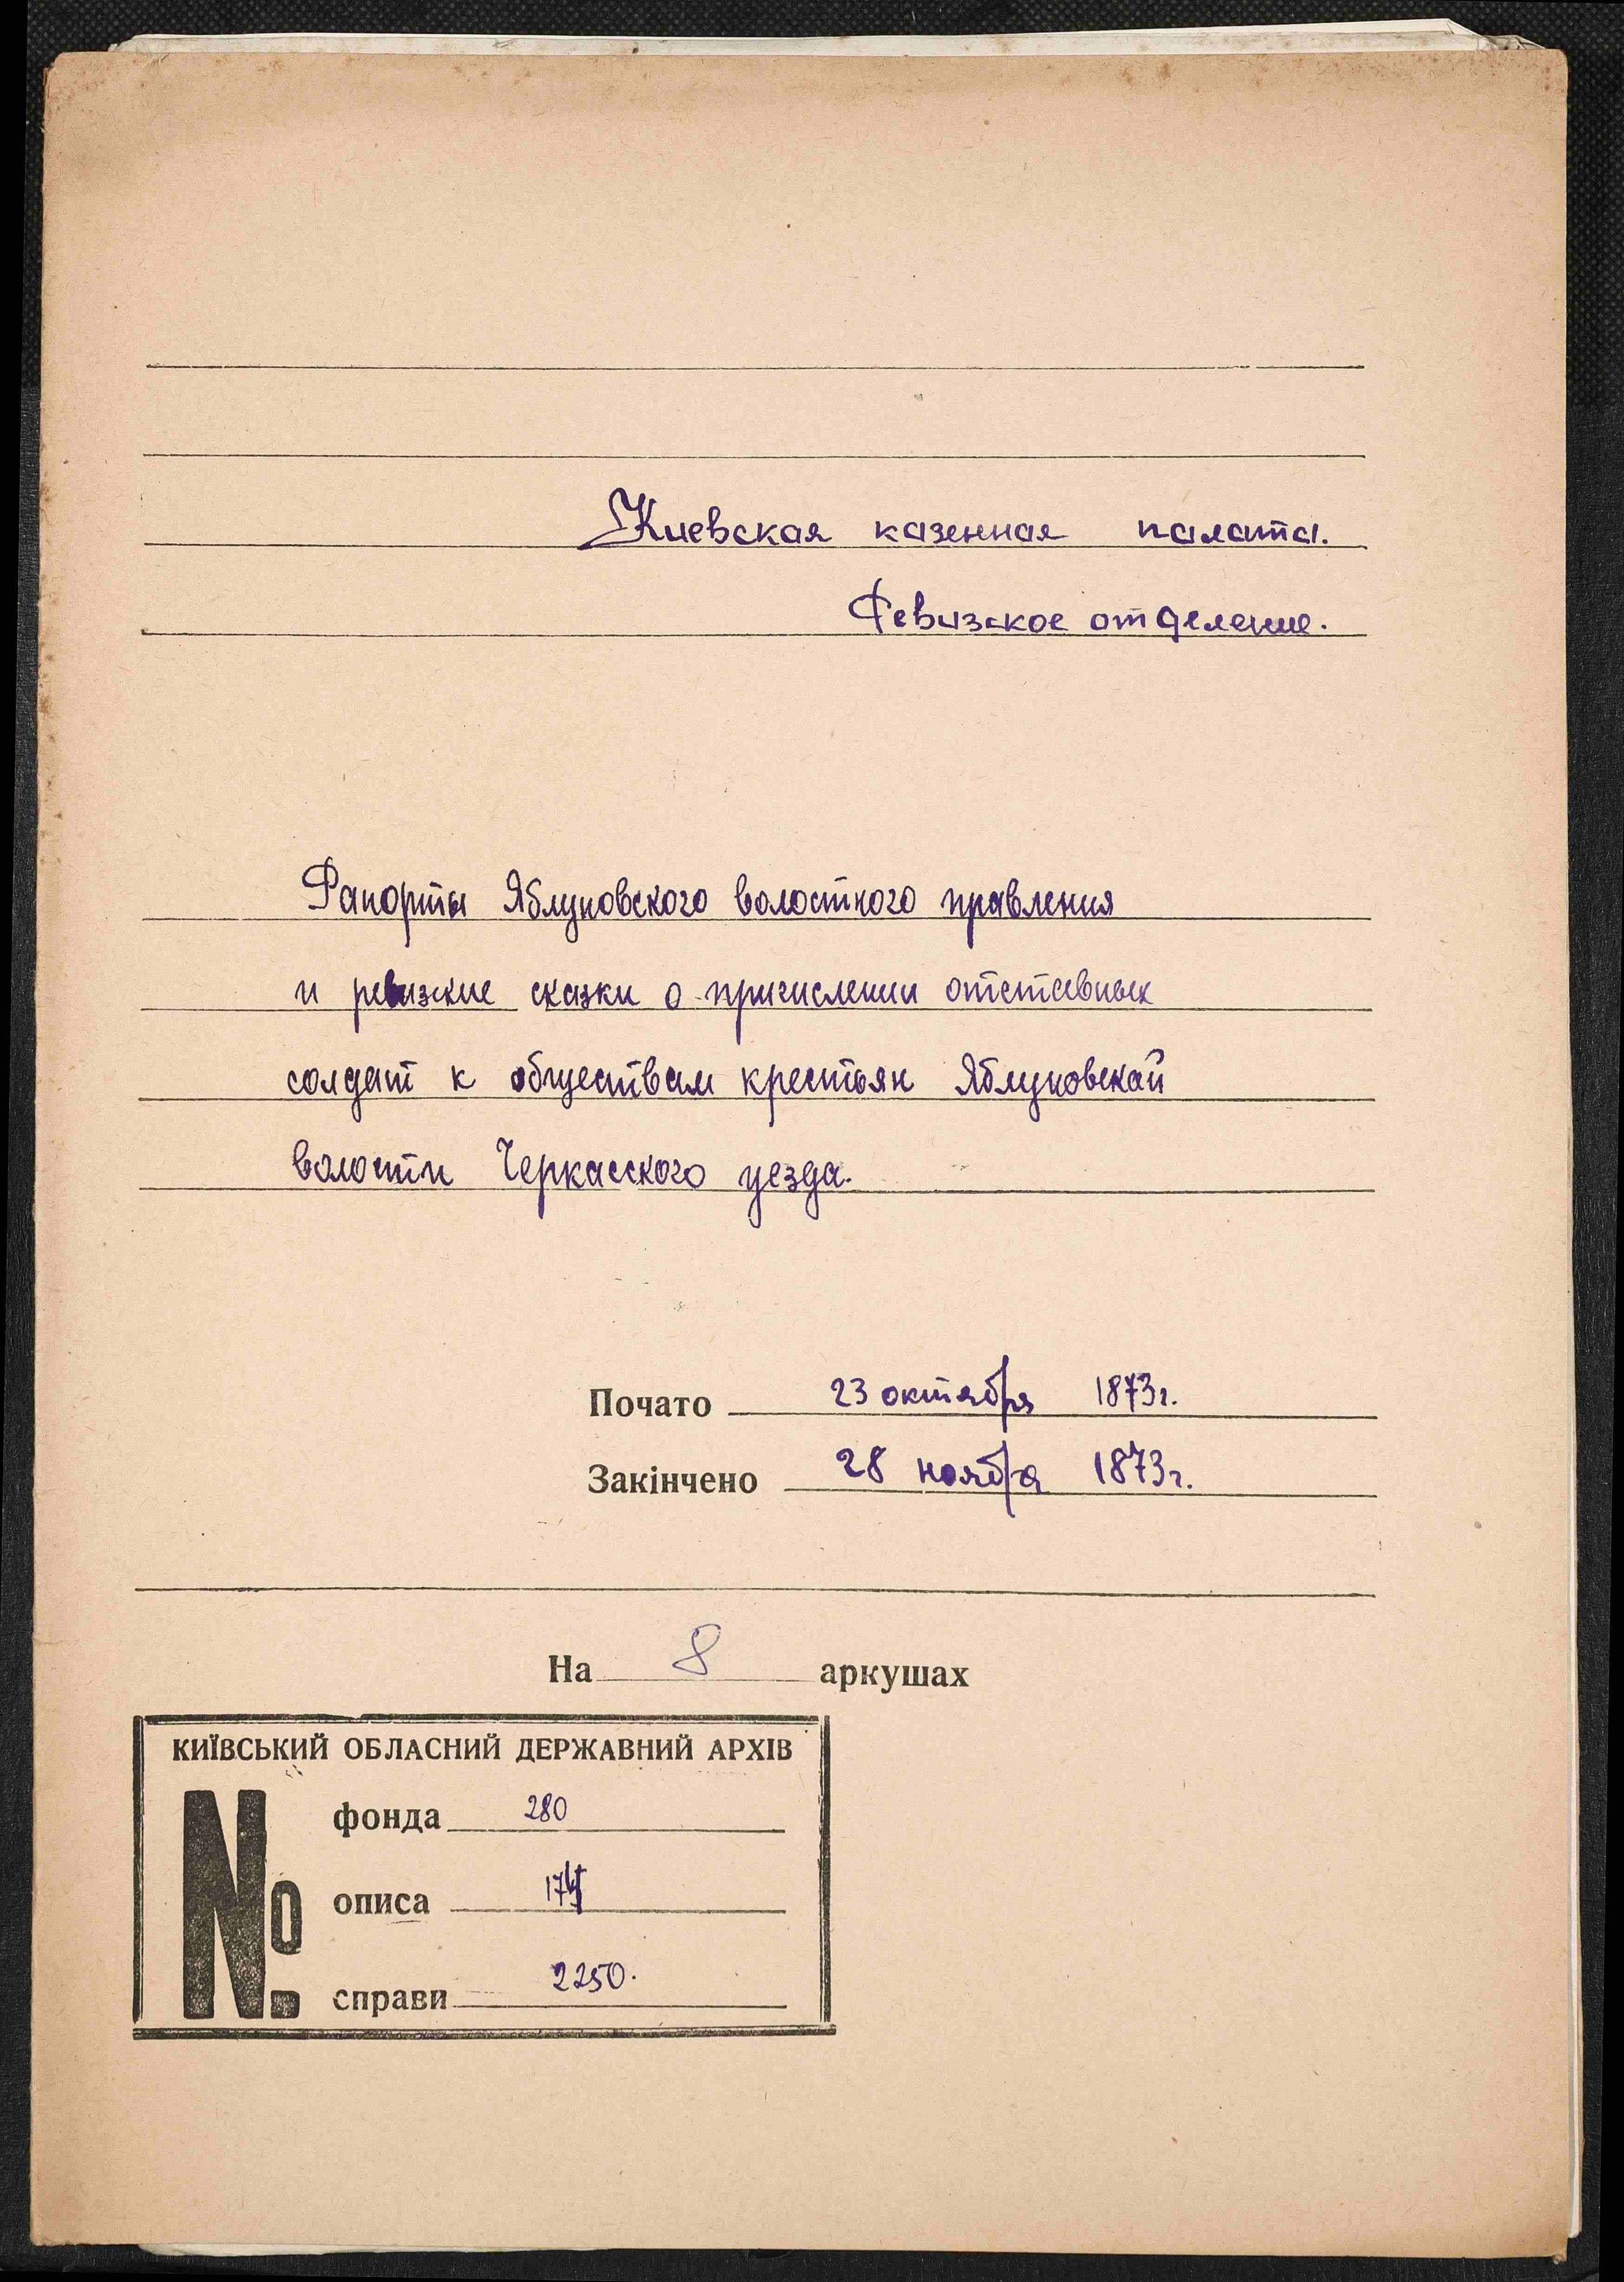 Киевская казенная палата.
Ревизское отделение.
Рапорты Яблуновского волостного правления
и ревизские сказки о причислении отставных
солдат к обществам крестьян Яблуновской
волости Черкасского уезда.
Почато 23 октября 1873г.
Закінчено 28 ноября 1873г.
На 8 аркушах
КИЇВСЬКИЙ ОБЛАСНИЙ ДЕРЖАВНИЙ АРХІВ
№
фонда 280
описа
справи 2250.